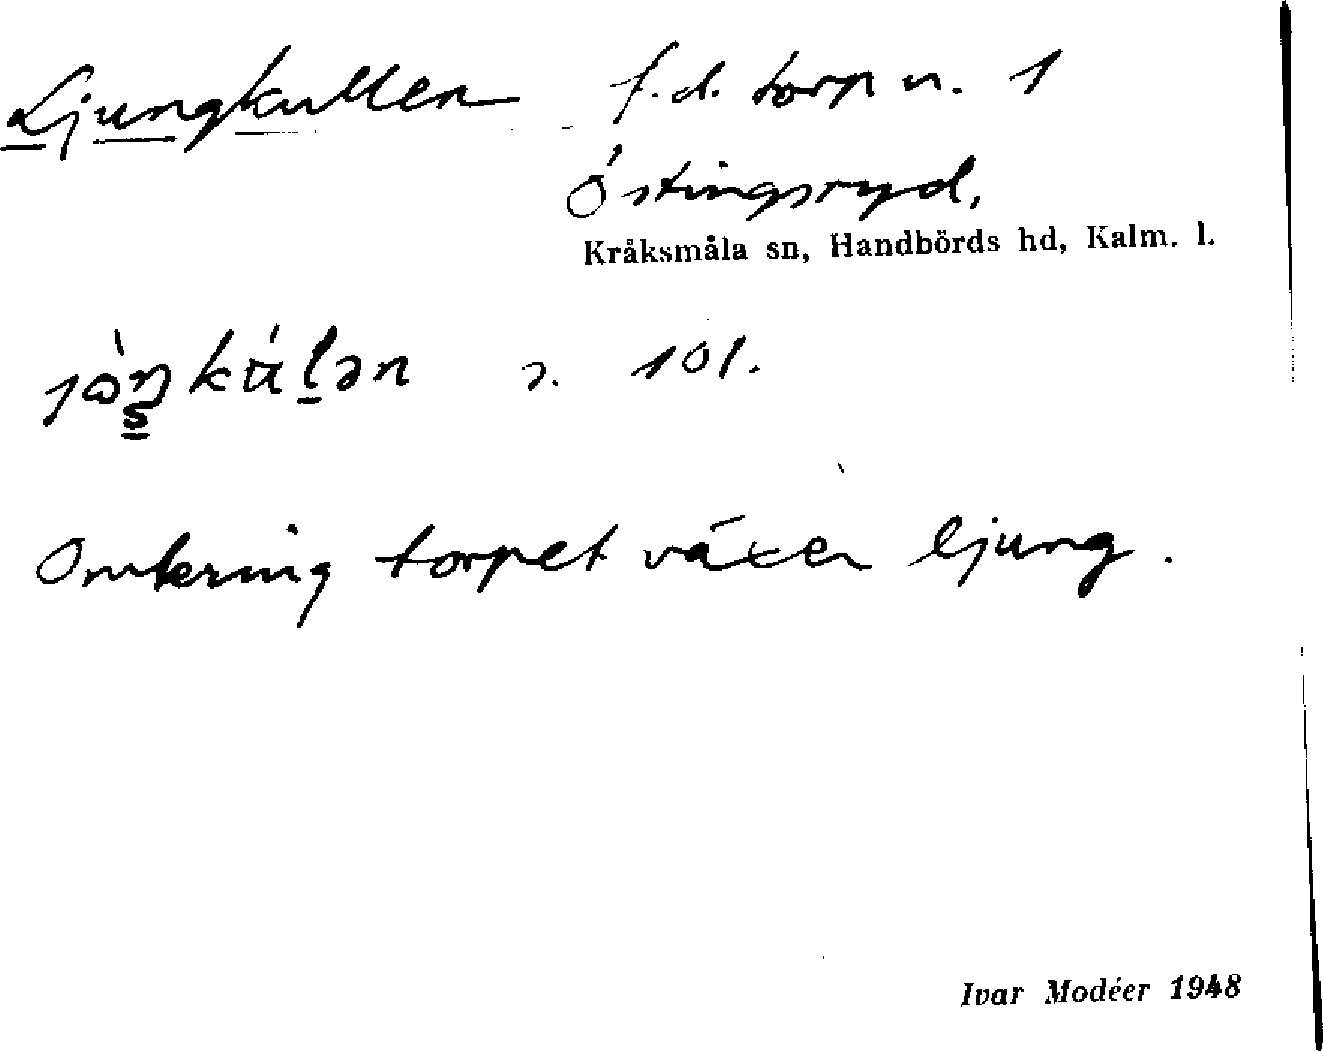 Ljungkullen f.d. torp u. 1
Östingsryd,
Kråksmåla sn, Handbörds hd, Kalm. l.
101.
Omkring torpet växer ljung.
Ivar Modéer 1948